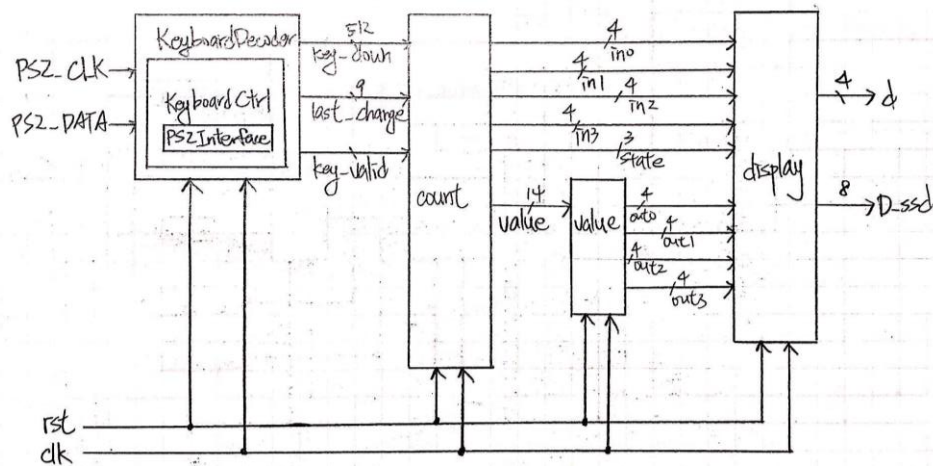 KeyboardDecoder
PS2_CLK
PS2_DATA
KeyboardCtrl
PS2Interface
512
key_down
9
last_change
key_valid
count
4
in0
4
in1
4
in2
4
in3
3
state
14
value
value
4
out0
4
out1
4
out2
4
out3
display
4
d
8
D_ssd
rst
clk